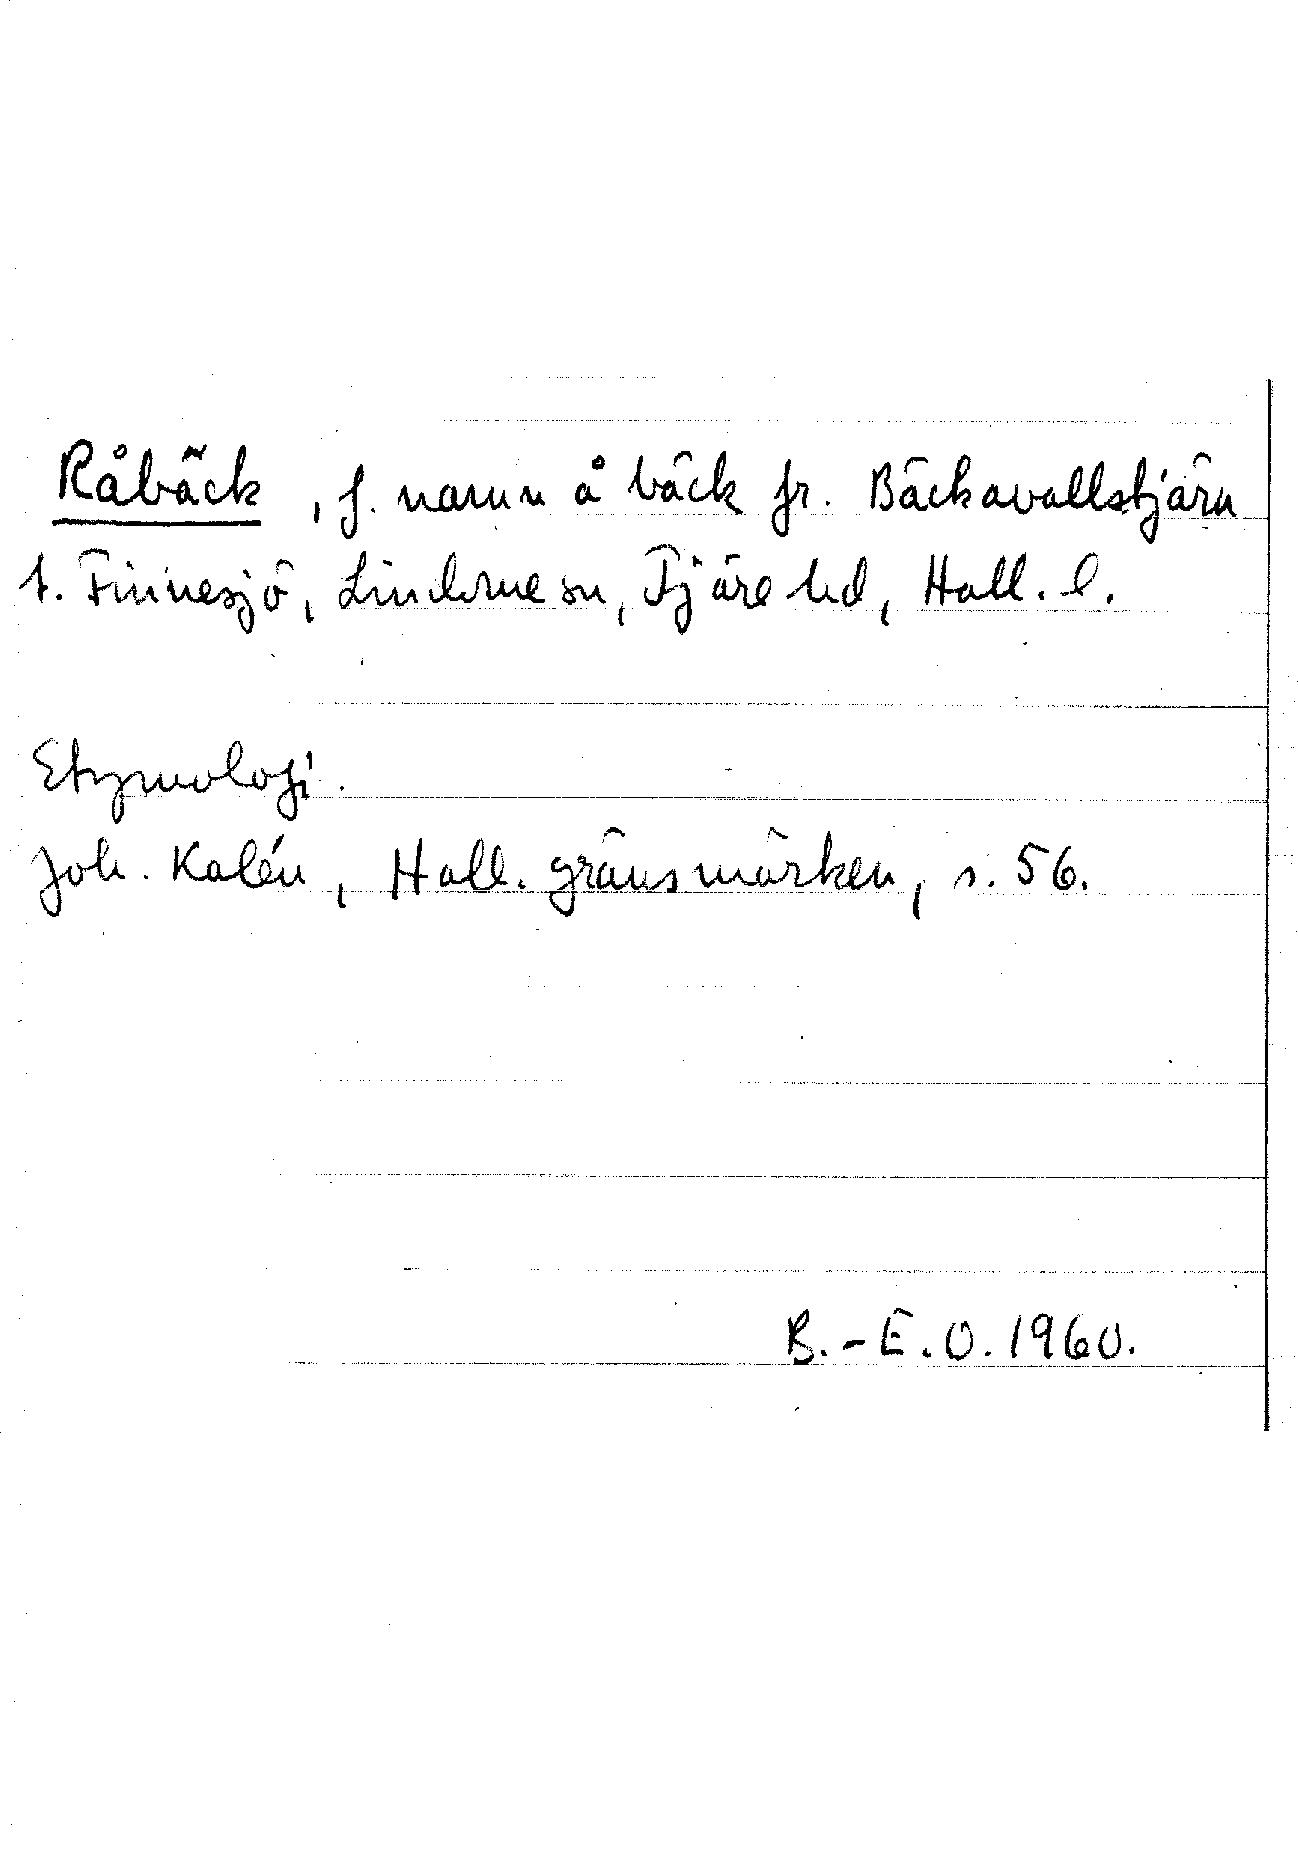 Råbäck, f. namn å bäck fr. Bäckavallstjärn
t. Finnesjö, Lindome sn, Fjäre hd, Hall. l.
Etymologi.
Joh. Kalén, Hall. gränsmärken, s. 56.
B.-E.O. 1960.